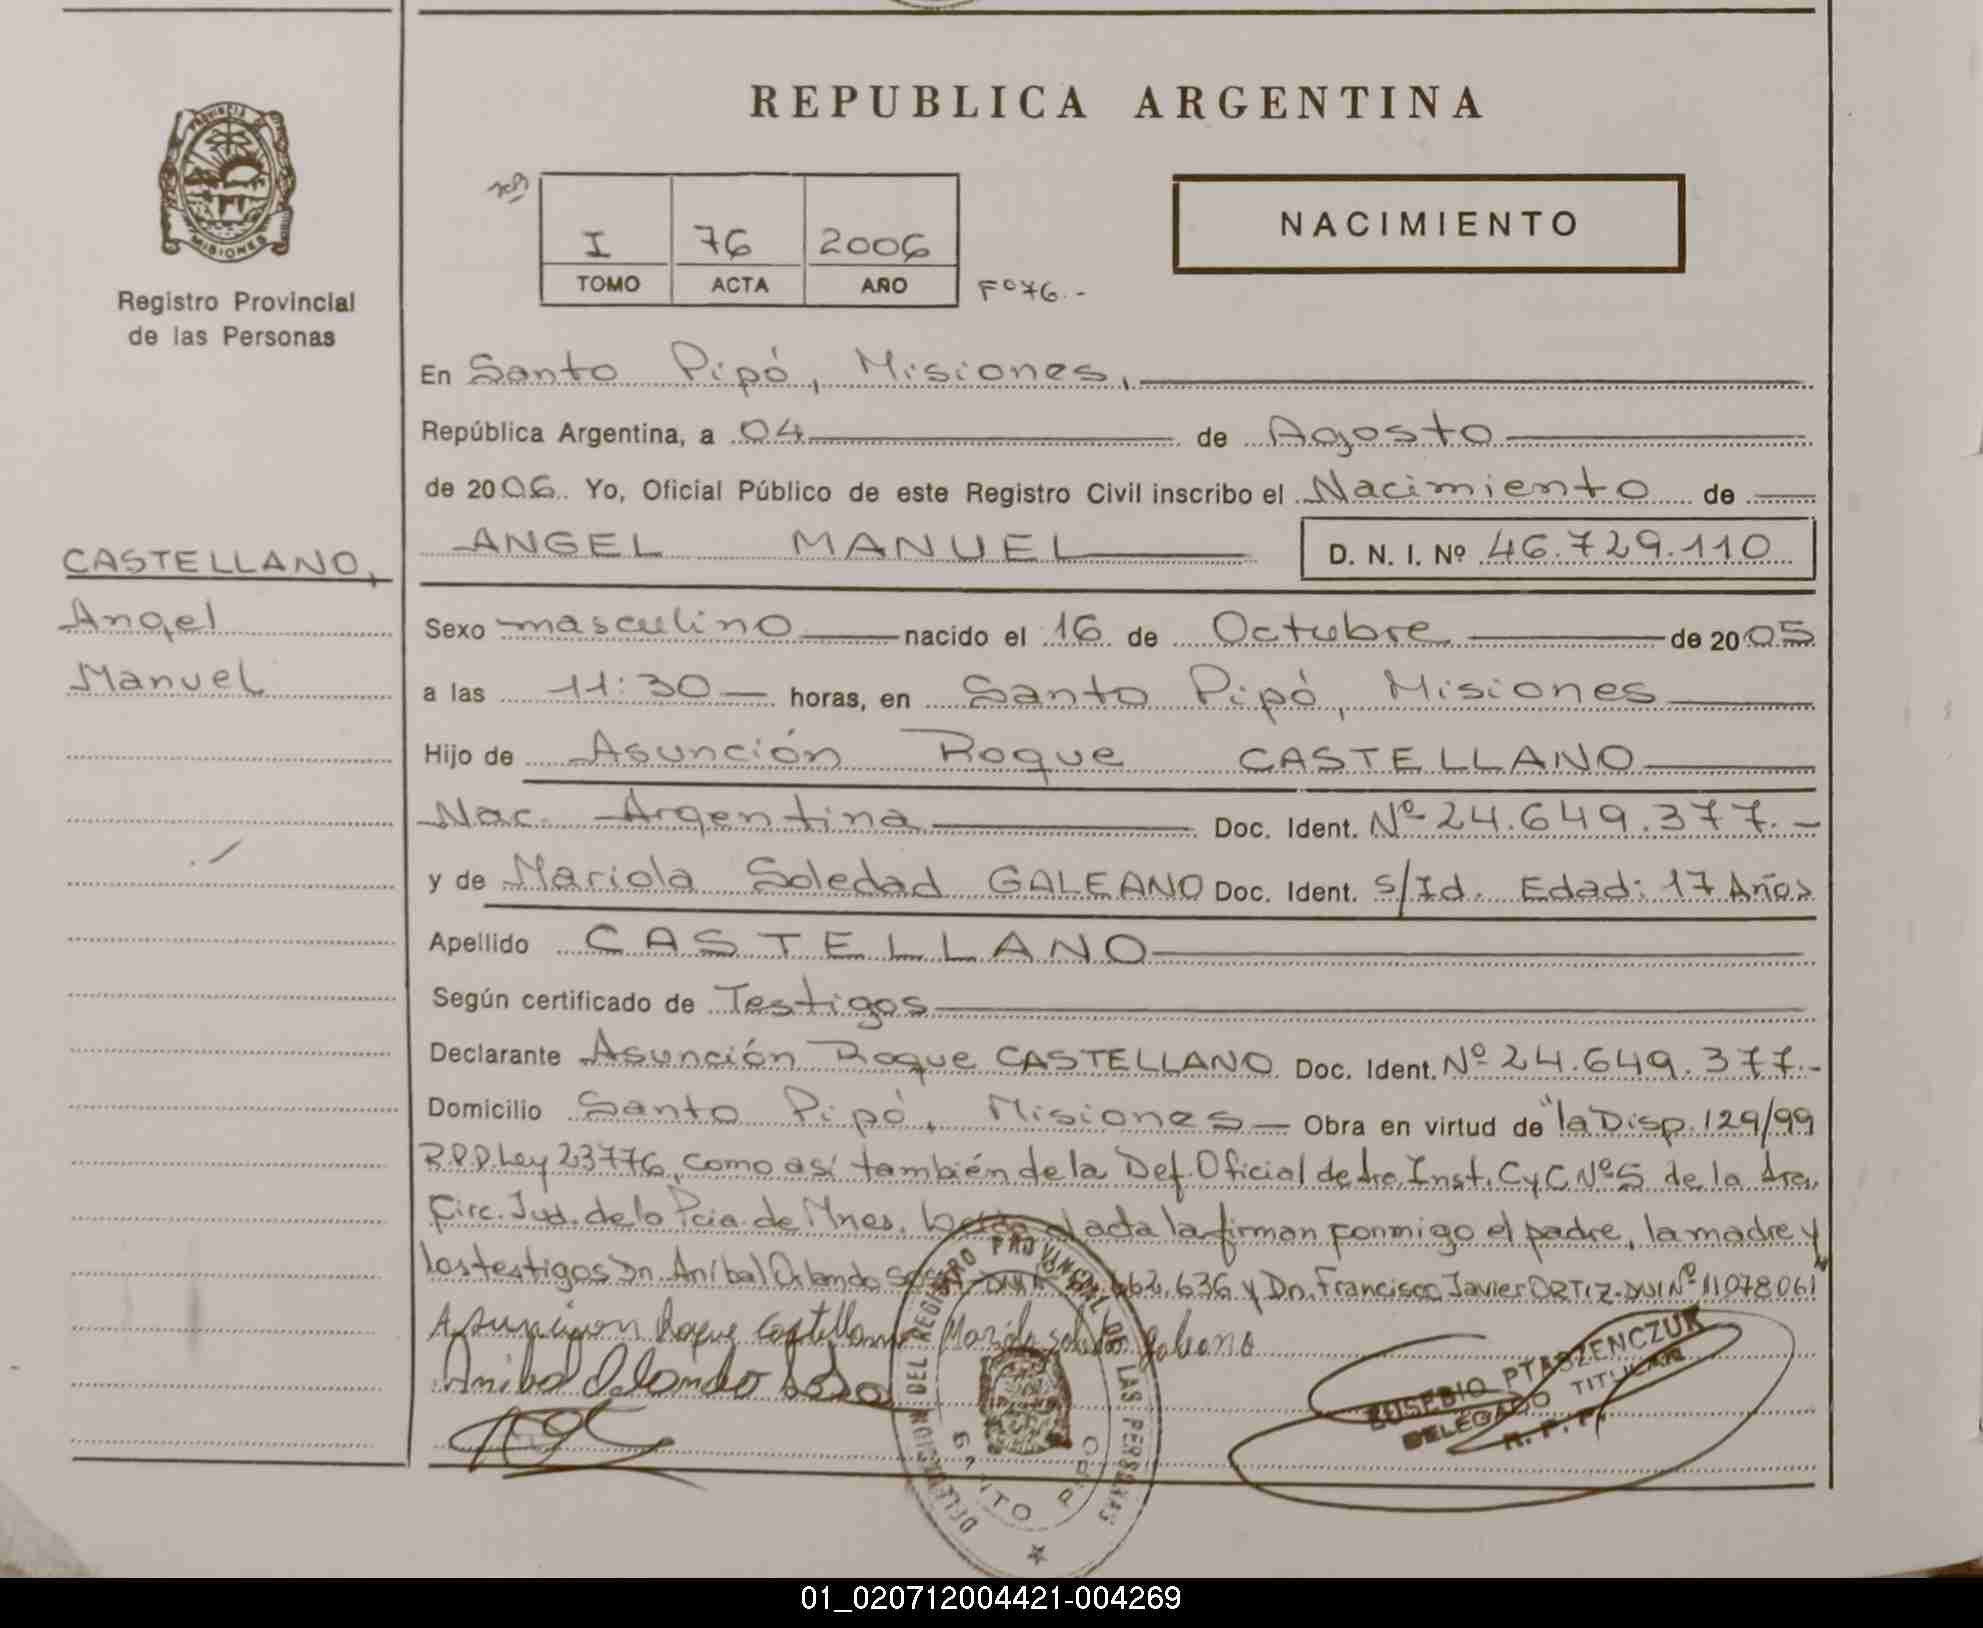 REPUBLICA ARGENTINA
PROVINCIA DE
MISIONES
Registro Provincial
de las Personas
NACIMIENTO
I 76 2006
TOMO ACTA AÑO
Fº 76.-
En Santo Pipó, Misiones,
República Argentina, a 04 de Agosto
de 2006. Yo, Oficial Público de este Registro Civil inscribo el Nacimiento de
ANGEL MANUEL D. N. I. Nº 46.729.110
CASTELLANO,
Angel
Manuel
Sexo masculino nacido el 16 de Octubre de 2005
a las 11:30 horas, en Santo Pipó, Misiones
Hijo de Asunción Roque CASTELLANO
Nac. Argentina Doc. Ident. Nº 24.649.377.-
y de Mariola Soledad GALEANO Doc. Ident. s/Id. Edad: 17 Años
Apellido CASTELLANO
Según certificado de Testigos
Declarante Asunción Roque CASTELLANO Doc. Ident. Nº 24.649.377.-
Domicilio Santo Pipó, Misiones Obra en virtud de "la Disp. 129/99
R.P.P Ley 23776, como así también de la Def. Oficial de 1ra Inst. C y C Nº 5 de la 1ra,
Circ. Jud. de la Pcia. de Mnes. acta la firman conmigo el padre, la madre y
los testigos Dn. Aníbal Orlando SOSA 662.636 y Dn. Francisco Javier ORTIZ. DNI Nº 11078061
Asuncion Roque Castellano Mariola soledad galeano
Anibal Orlando Sosa
DELEGACION DEL REGISTRO PROVINCIAL DE LAS PERSONAS
SANTO PIPO
EUSEBIO PTASZENCZUK
DELEGADO TITULAR
R. P. P.
01_020712004421-004269